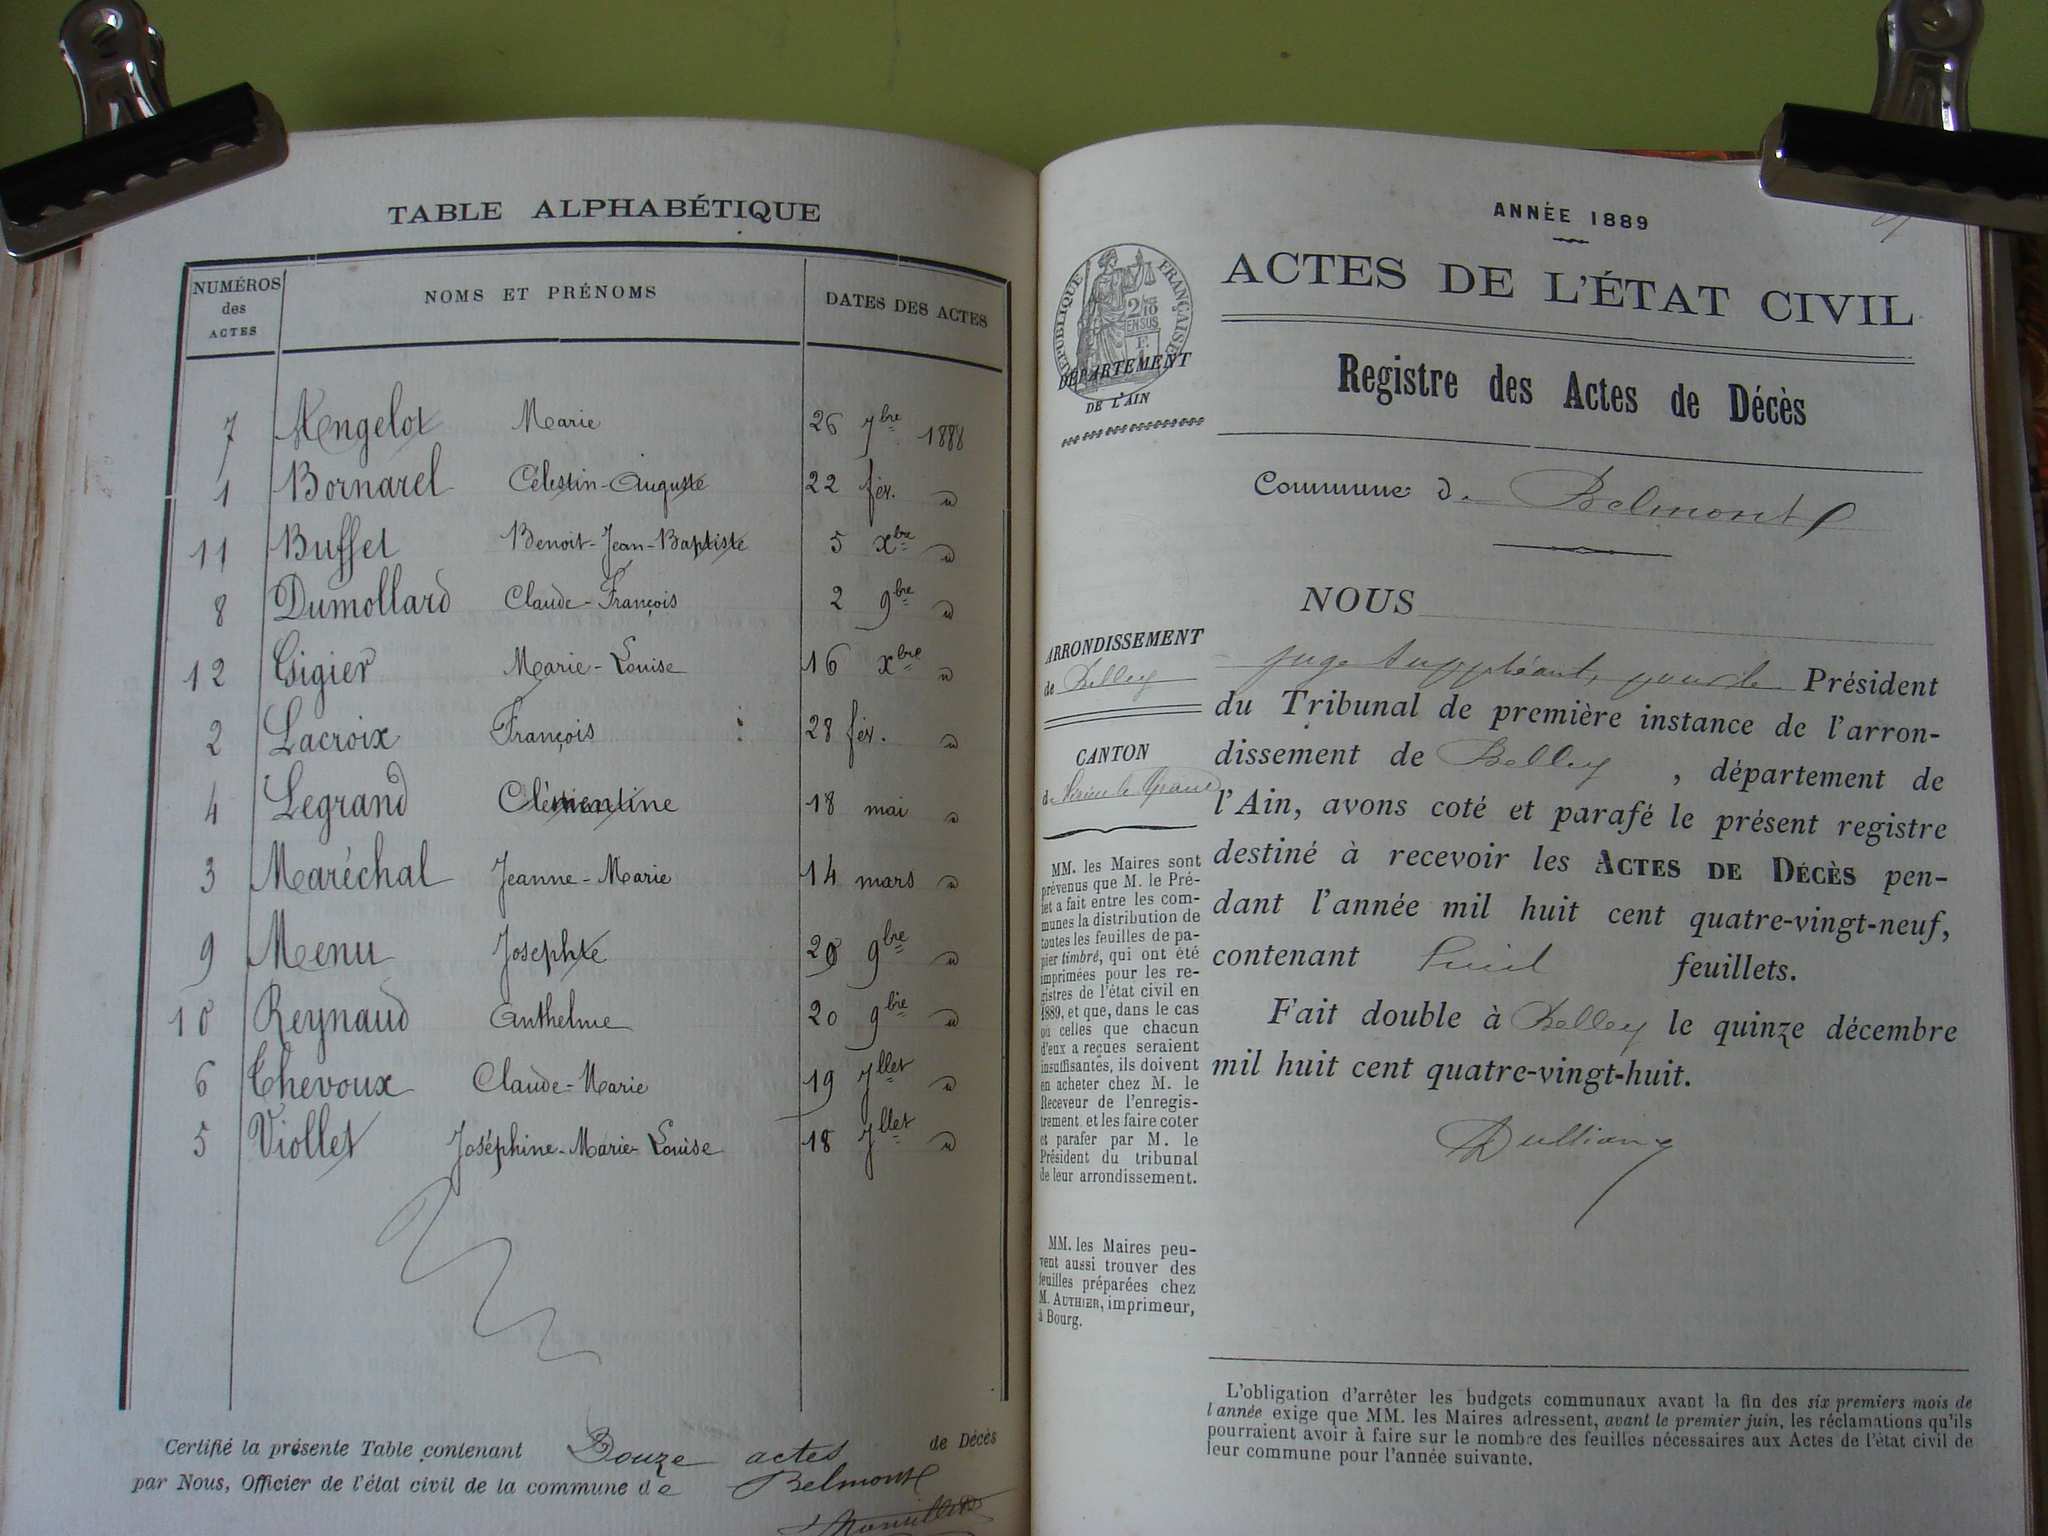 TABLE ALPHABÉTIQUE
NUMÉROS des ACTES NOMS ET PRÉNOMS DATES DES ACTES
7 Angelot Marie 26 7bre 1888
1 Bornarel Célestin-Auguste 22 fév. "
11 Buffet Benoit-Jean-Baptiste 5 xbre "
8 Dumollard Claude-François 2 9bre "
12 Gigier Marie-Louise 16 xbre "
2 Lacroix François 28 fév. "
4 Legrand Clémentine 18 mai "
3 Maréchal Jeanne-Marie 14 mars "
9 Menu Josephte 9bre "
10 Reynaud Anthelme 20 9bre "
6 Chevoux Claude-Marie 19 Jllet "
5 Viollet Joséphine-Marie-Louise 18 Jllet "
Certifié la présente Table contenant Douze actes de Décès
par Nous, Officier de l'état civil de la commune de Belmont
ANNÉE 1889
RÉPUBLIQUE FRANÇAISE
2/10 EN SUS
DÉPARTEMENT
DE L'AIN
ACTES DE L'ÉTAT CIVIL
Registre des Actes de Décès
Commune de Belmont
ARRONDISSEMENT
de Belley
CANTON
de Virieu le Grand
MM. les Maires sont
prévenus que M. le Pré-
fet a fait entre les com-
munes la distribution de
toutes les feuilles de pa-
pier timbré, qui ont été
imprimées pour les re-
gistres de l'état civil en
1889, et que, dans le cas
où celles que chacun
d'eux a reçues seraient
insuffisantes, ils doivent
en acheter chez M. le
Receveur de l'enregis-
trement et les faire coter
et parafer par M. le
Président du tribunal
de leur arrondissement.
MM. les Maires peu-
vent aussi trouver des
feuilles préparées chez
M. AUTHIER, imprimeur,
à Bourg.
NOUS
juge suppléant, pour le Président
du Tribunal de première instance de l'arron-
dissement de Belley , département de
l'Ain, avons coté et parafé le présent registre
destiné à recevoir les ACTES DE DÉCÈS pen-
dant l'année mil huit cent quatre-vingt-neuf,
contenant huit feuillets.
Fait double à Belley le quinze décembre
mil huit cent quatre-vingt-huit.
L'obligation d'arrêter les budgets communaux avant la fin des six premiers mois de
l'année exige que MM. les Maires adressent, avant le premier juin, les réclamations qu'ils
pourraient avoir à faire sur le nombre des feuilles nécessaires aux Actes de l'état civil de
leur commune pour l'année suivante.